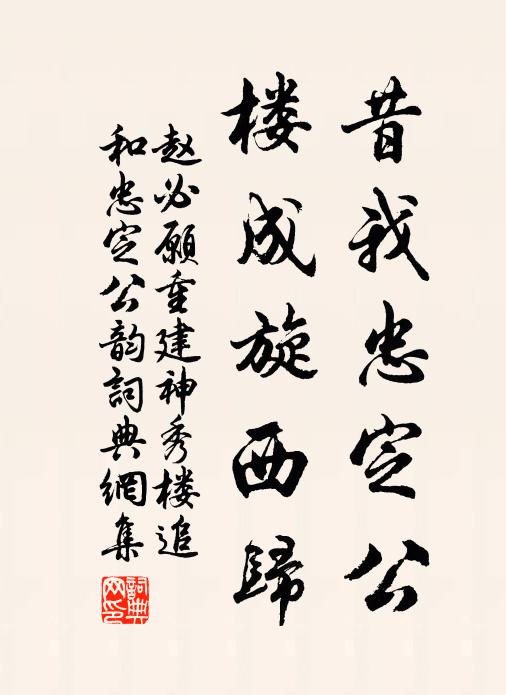 昔我忠定公
楼成旋西歸
赵必愿重建神秀楼追
和忠定公韵詞典網集
詞典
网印